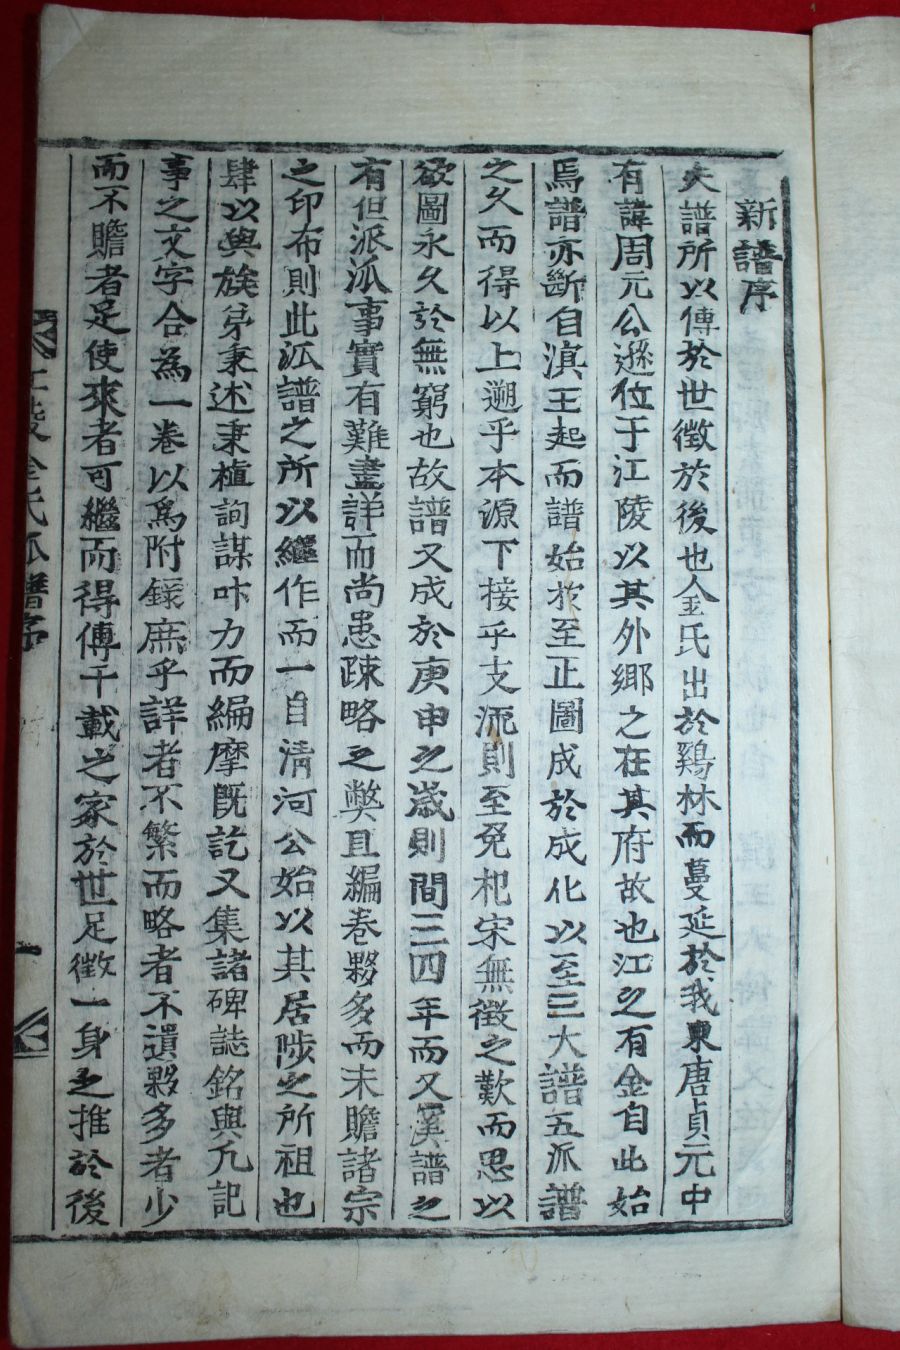 新譜序
夫譜所以傳於世徵於後也金氏出於鷄林而蔓延於我東唐貞元中
有諱周元公遜位于江陵以其外鄉之在其府故也江之有金自此始
焉譜亦斷自溟王起而譜始於至正圖成於成化以至三大譜五派譜
之久而得以上遡乎本源下接乎支流則至免杞宋無徵之歎而思以
欲圖永久於無窮也故譜又成於庚申之歲則間三四年而又溪譜之
有但派派事實有難盡詳而尚患疎略之弊且編卷夥多而未贍諸宗
之印布則此派譜之所以繼作而一自淸河公始以其居陟之所祖也
肆以與族弟秉述秉植詢謀卟力而編摩旣訖又集諸碑誌銘與凡記
事之文字合爲一卷以爲附錄庶乎詳者不繁而略者不遺夥多者少
而不贍者足使來者可繼而得傳千載之家於世足徵一身之推於後
金氏派譜序
一